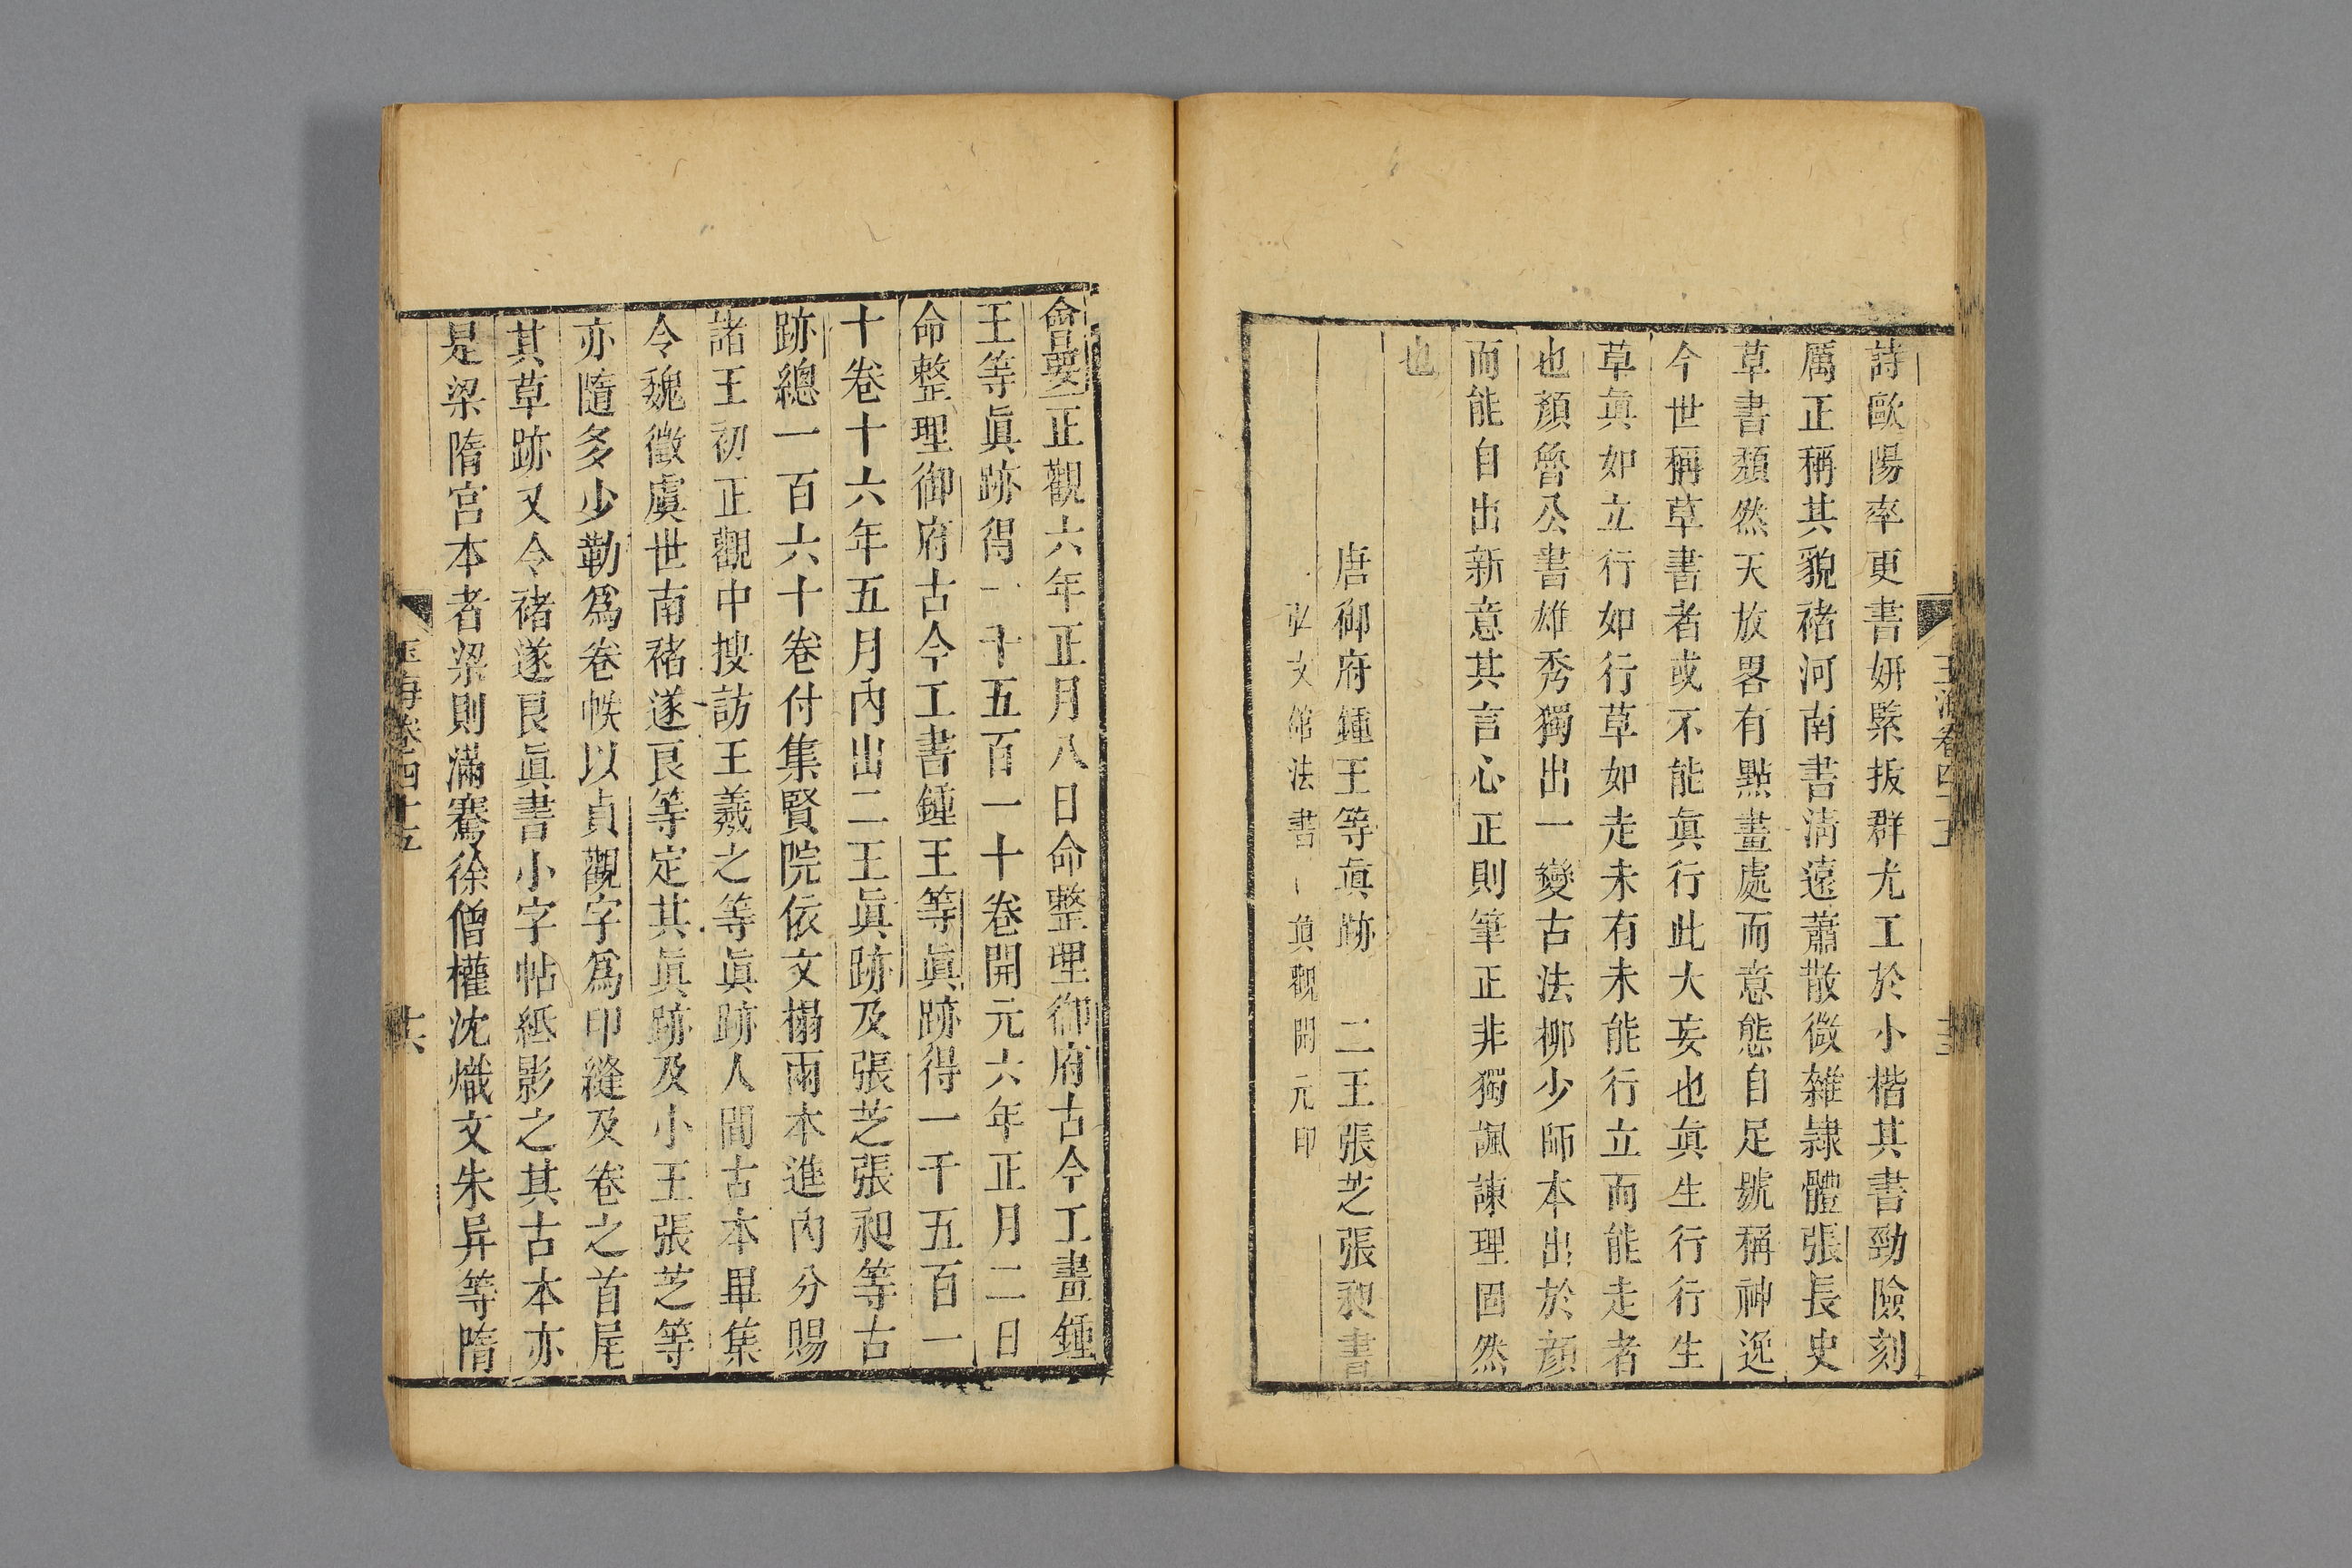 詩歐陽率更書妍緊拔群尤工於小楷其書勁險刻
厲正稱其貌褚河南書清遠蕭散微雜隷體張長史
草書頽然天放畧有點畫處而意態自足號稱神逸
今世稱草書者或不能眞行此大妄也眞生行行生
草眞如立行如行草如走未有未能行立而能走者
也顏魯公書雄秀獨出一變古法柳少師本出於顏
而能自出新意其言心正則筆正非獨諷諫理固然
也
唐御府鍾王等眞跡 二王張芝張昶書
弘文館法書 貞觀開元印
玉海卷四十五
會要正觀六年正月八日命整理御府古今工書鍾
王等眞跡得一千五百一十卷開元六年正月二日
命整理御府古今工書鍾王等眞跡得一千五百一
十卷十六年五月內出二王眞跡及張芝張昶等古
跡總一百六十卷付集賢院依文榻兩本進內分賜
諸王初正觀中搜訪王羲之等眞跡人間古本畢集
令魏徵虞世南褚遂良等定其眞跡及小王張芝等
亦隨多少勒爲卷帙以貞觀字爲印縫及卷之首尾
其草跡又令褚遂良眞書小字帖紙影之其古本亦
是梁隋宮本者梁則滿騫徐僧權沈熾文朱异等隋
玉海卷四十五